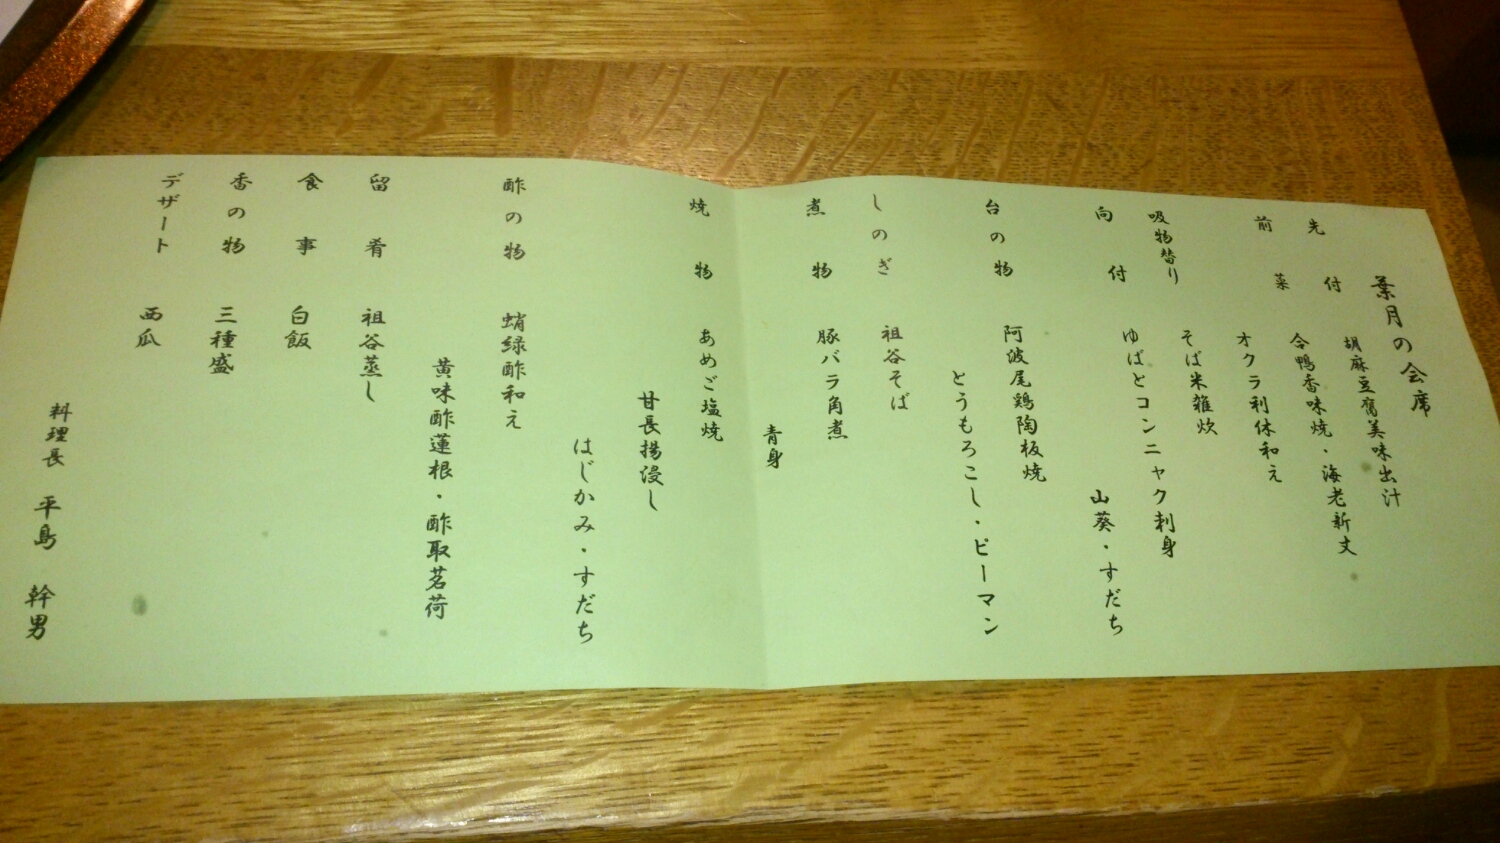 葉月の会席
先付 胡麻豆腐美味出汁
前菜 合鴨香味焼・海老新丈
オクラ利休和え
吸物替り そば米雑炊
向付 ゆばとコンニャク刺身
山葵・すだち
台の物 阿波尾鶏陶板焼
とうもろこし・ピーマン
しのぎ 祖谷そば
煮物 豚バラ角煮
青身
焼物 あめご塩焼
甘長揚浸し
はじかみ・すだち
酢の物 蛸緑酢和え
黄味酢蓮根・酢取茗荷
留肴 祖谷蒸し
食事 白飯
香の物 三種盛
デザート 西瓜
料理長 平島 幹男